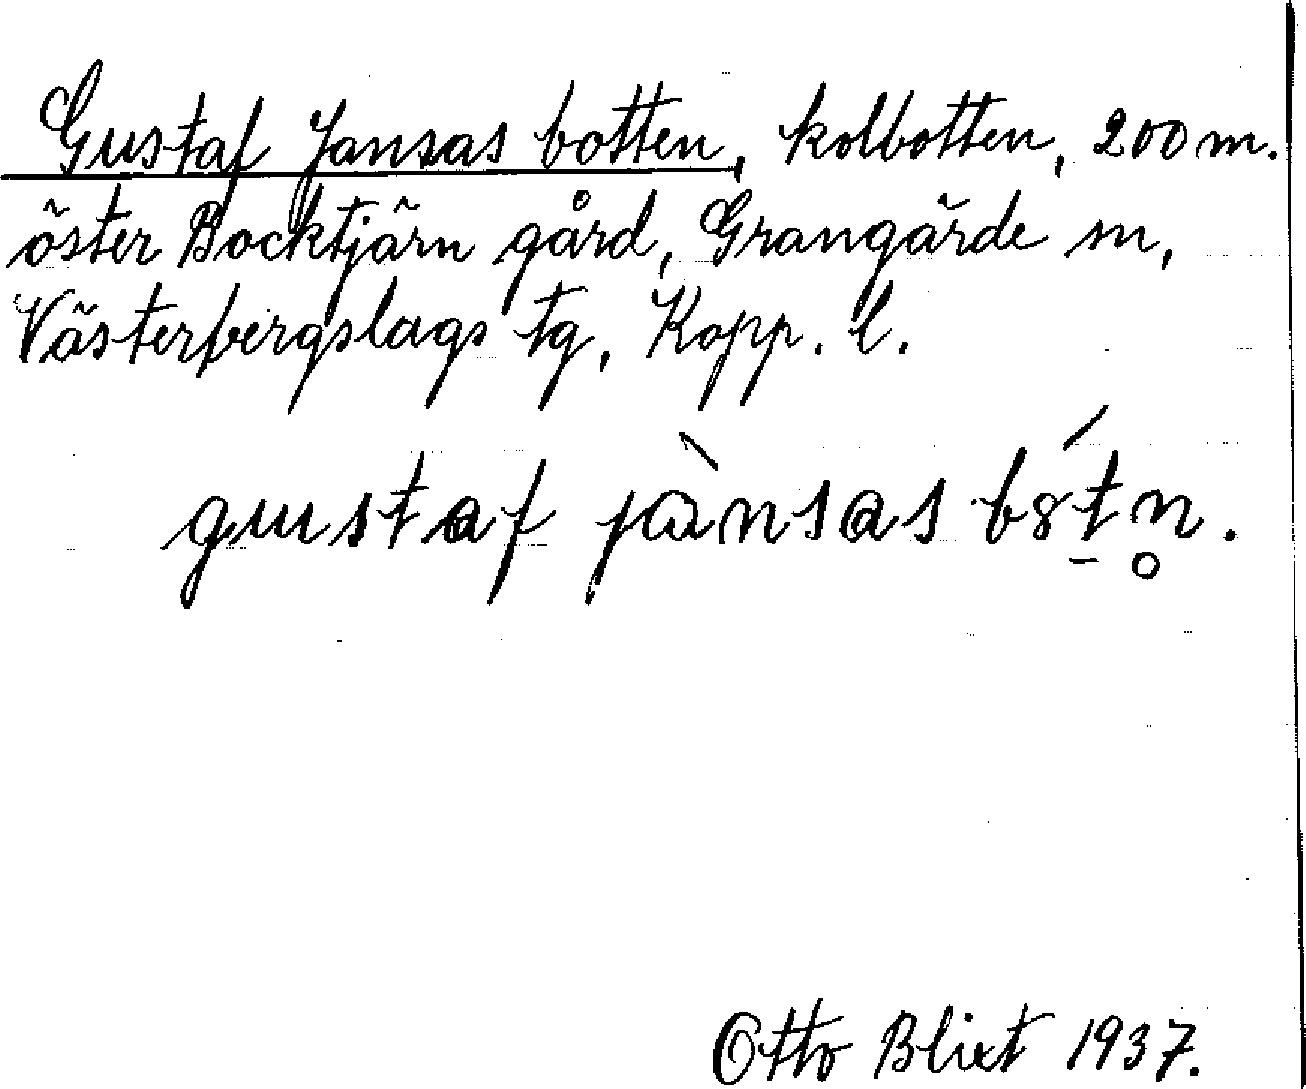 Gustaf Jansas botten, kolbotten, 200 m.
öster Bocktjärn gård, Grangärde sn,
Västerbergslags tg, Kopp. l.
gustaf jànsas b8́t̠n̥.
Otto Blixt 1937.